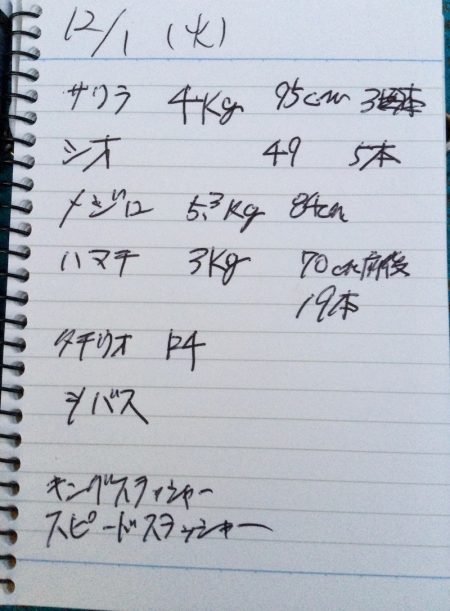 12/1 (火)
サワラ 4Kg 95cm 3本
シオ 49 5本
メジロ 5.3kg 84cm
ハマチ 3Kg 70cm前後
19本
タチウオ F4
シーバス
キングスラッシャー
スピードスラッシャー